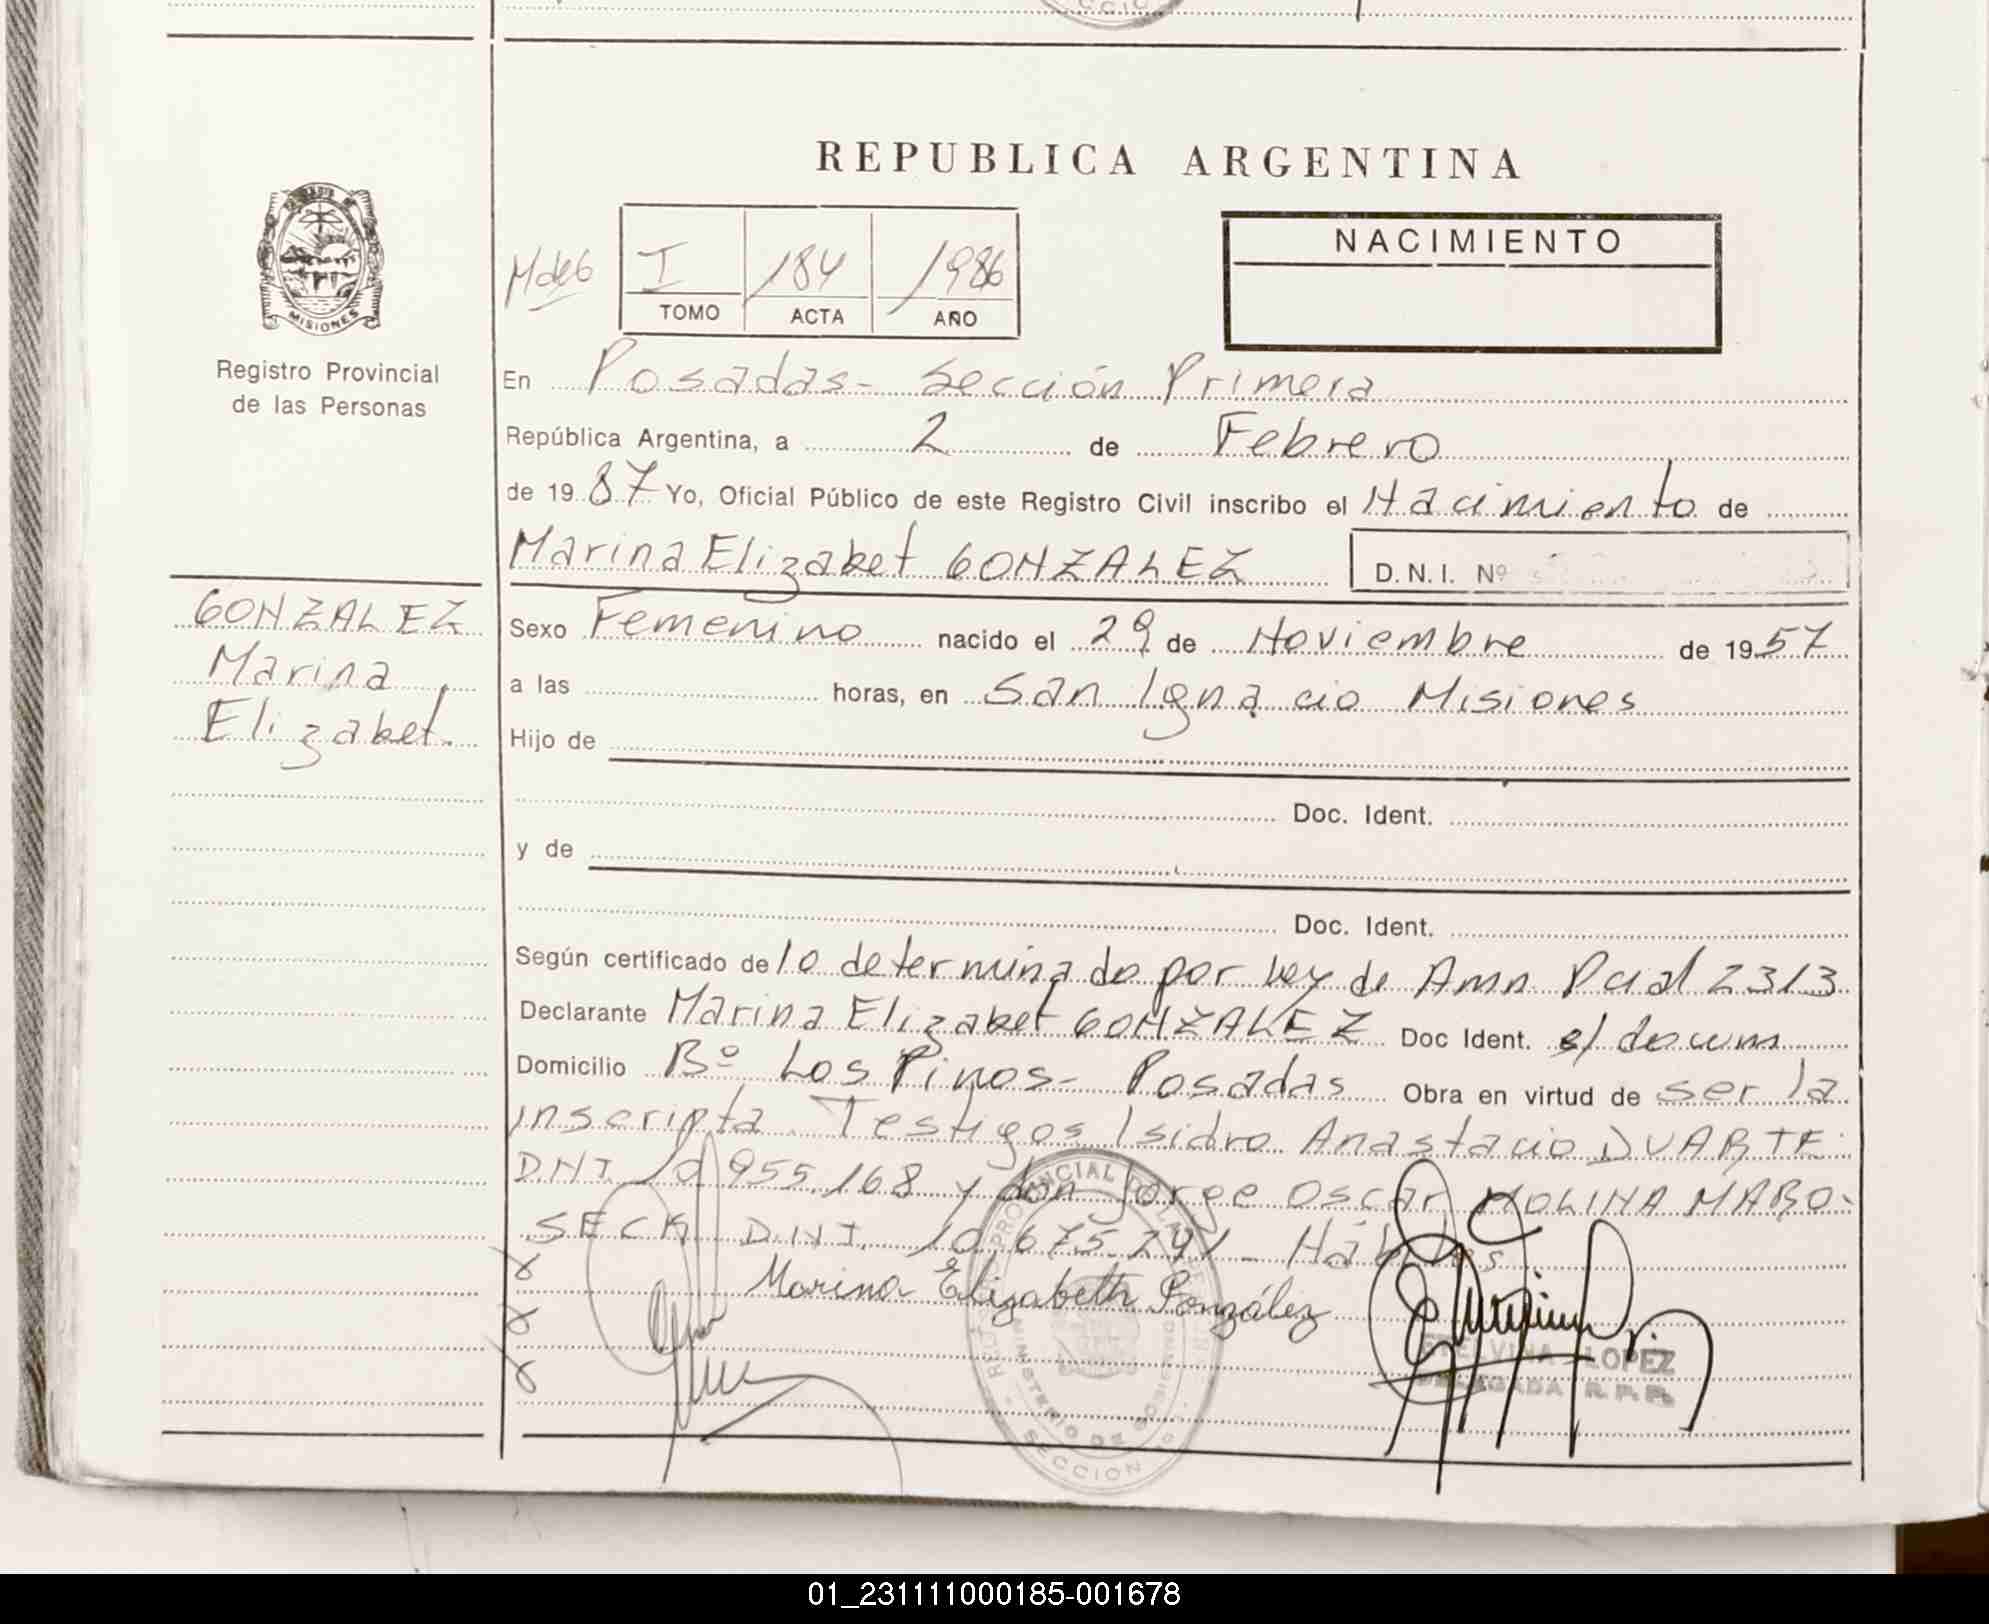 REPUBLICA ARGENTINA
MISIONES
Registro Provincial
de las Personas
I 184 1986
TOMO ACTA AÑO
NACIMIENTO
En Posadas - Sección Primera
República Argentina, a 2 de Febrero
de 1987 Yo, Oficial Público de este Registro Civil inscribo el Nacimiento de
Marina Elizabet GONZALEZ D.N.I. Nº
GONZALEZ
Marina
Elizabet.
Sexo Femenino nacido el 29 de Noviembre de 1957
a las horas, en San Ignacio Misiones
Hijo de
Doc. Ident.
y de
Doc. Ident.
Según certificado de lo determinado por Ley de Amn Pcial 2313
Declarante Marina Elizabet GONZALEZ Doc Ident. s/ docum
Domicilio Bº Los Pinos - Posadas Obra en virtud de ser la
inscripta. Testigos Isidro Anastacio DUARTE
DNI 10 955.168 y don Jorge Oscar MOLINA MARO-
SECK D.N.I. 10.675.241 - Hábiles
Marina Elizabeth González
ETELVINA LOPEZ
DELEGADA R. P. P.
MINISTERIO DE GOBIERNO
SECCION
01_231111000185-001678